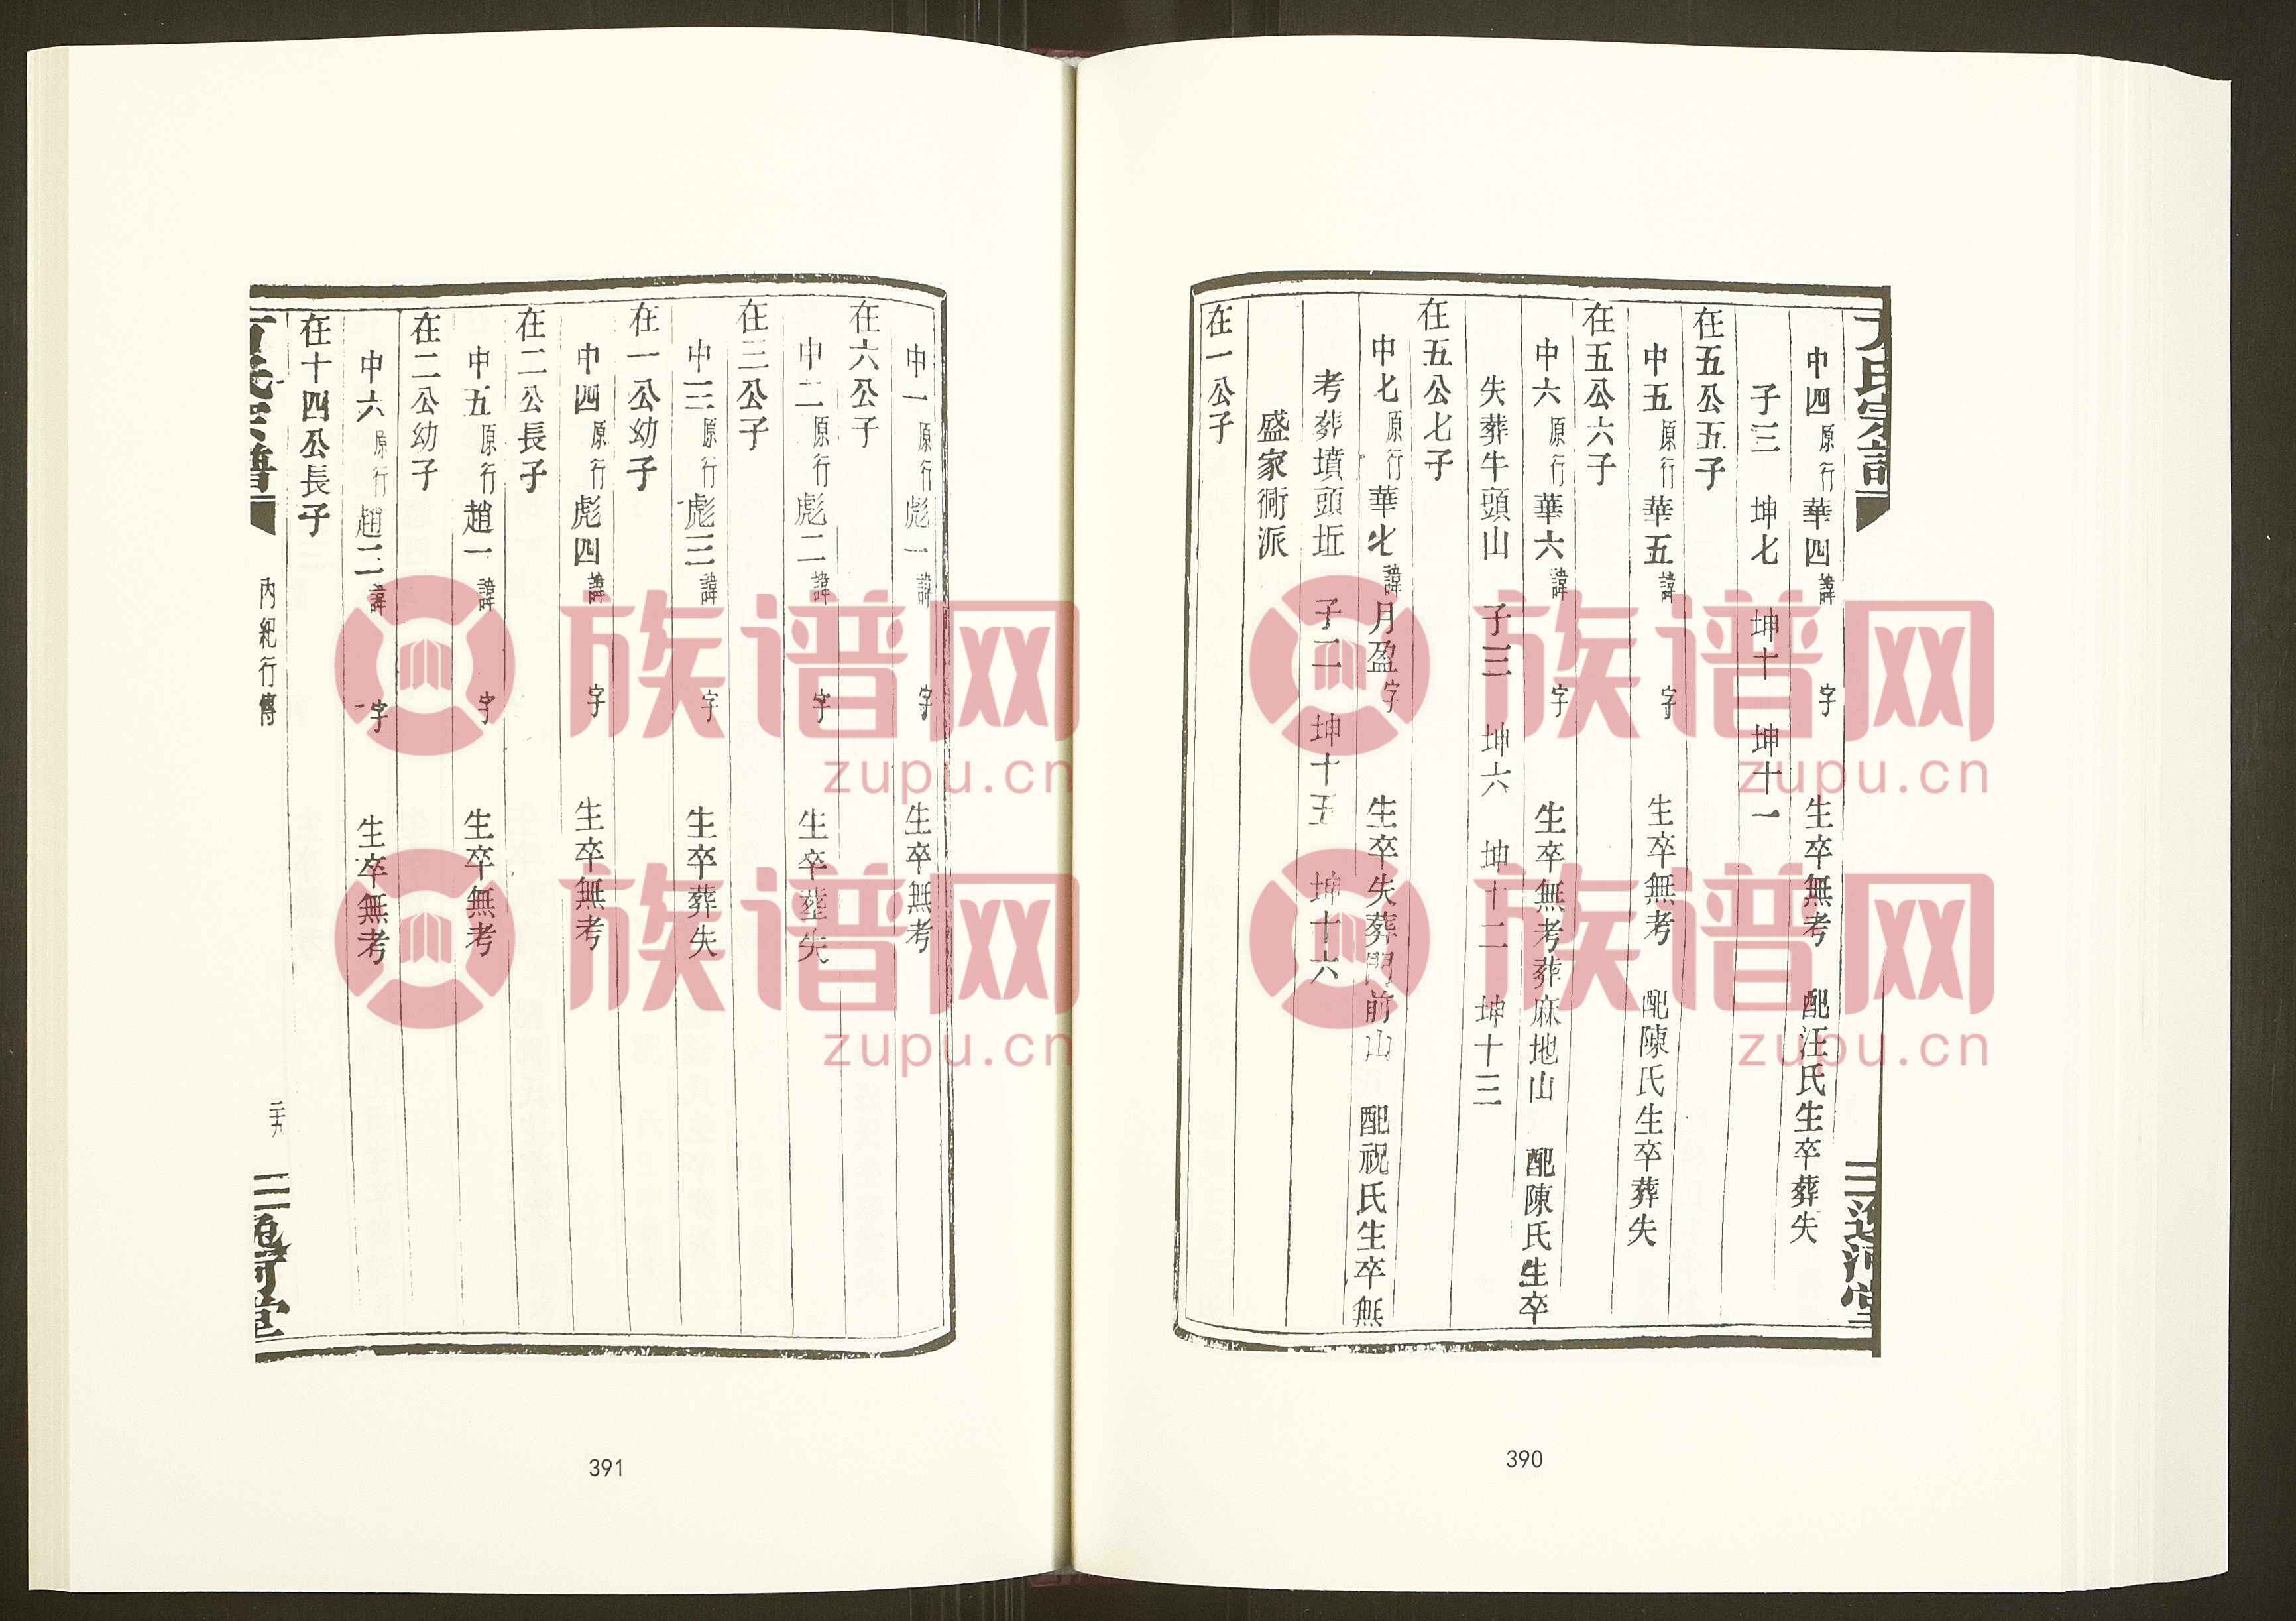 中四原行華四諱　字　生卒無考　配汪氏生卒葬失
子三　坤七　坤十　坤十一
在五公五子
中五原行華五諱　字　生卒無考　配陳氏生卒葬失
在五公六子
中六原行華六諱　字　生卒無考葬麻地山　配陳氏生卒
失葬牛頭山　子三　坤六　坤十二　坤十三
在五公七子
中七原行華七諱月盈字　生卒失葬門前山　配祝氏生卒無
考葬墳頭坵　子二　坤十五　坤十六
盛家衕派
在一公子
390
中一原行彪一諱　字　生卒無考
在六公子
中二原行彪二諱　字　生卒葬失
在三公子
中三原行彪三諱　字　生卒葬失
在一公幼子
中四原行彪四諱　字　生卒無考
在二公長子
中五原行趙一諱　字　生卒無考
在二公幼子
中六原行趙二諱　字　生卒無考
在十四公長子
內紀行傳
391
族谱网
zupu.cn
族谱网
zupu.cn
族谱网
zupu.cn
族谱网
zupu.cn